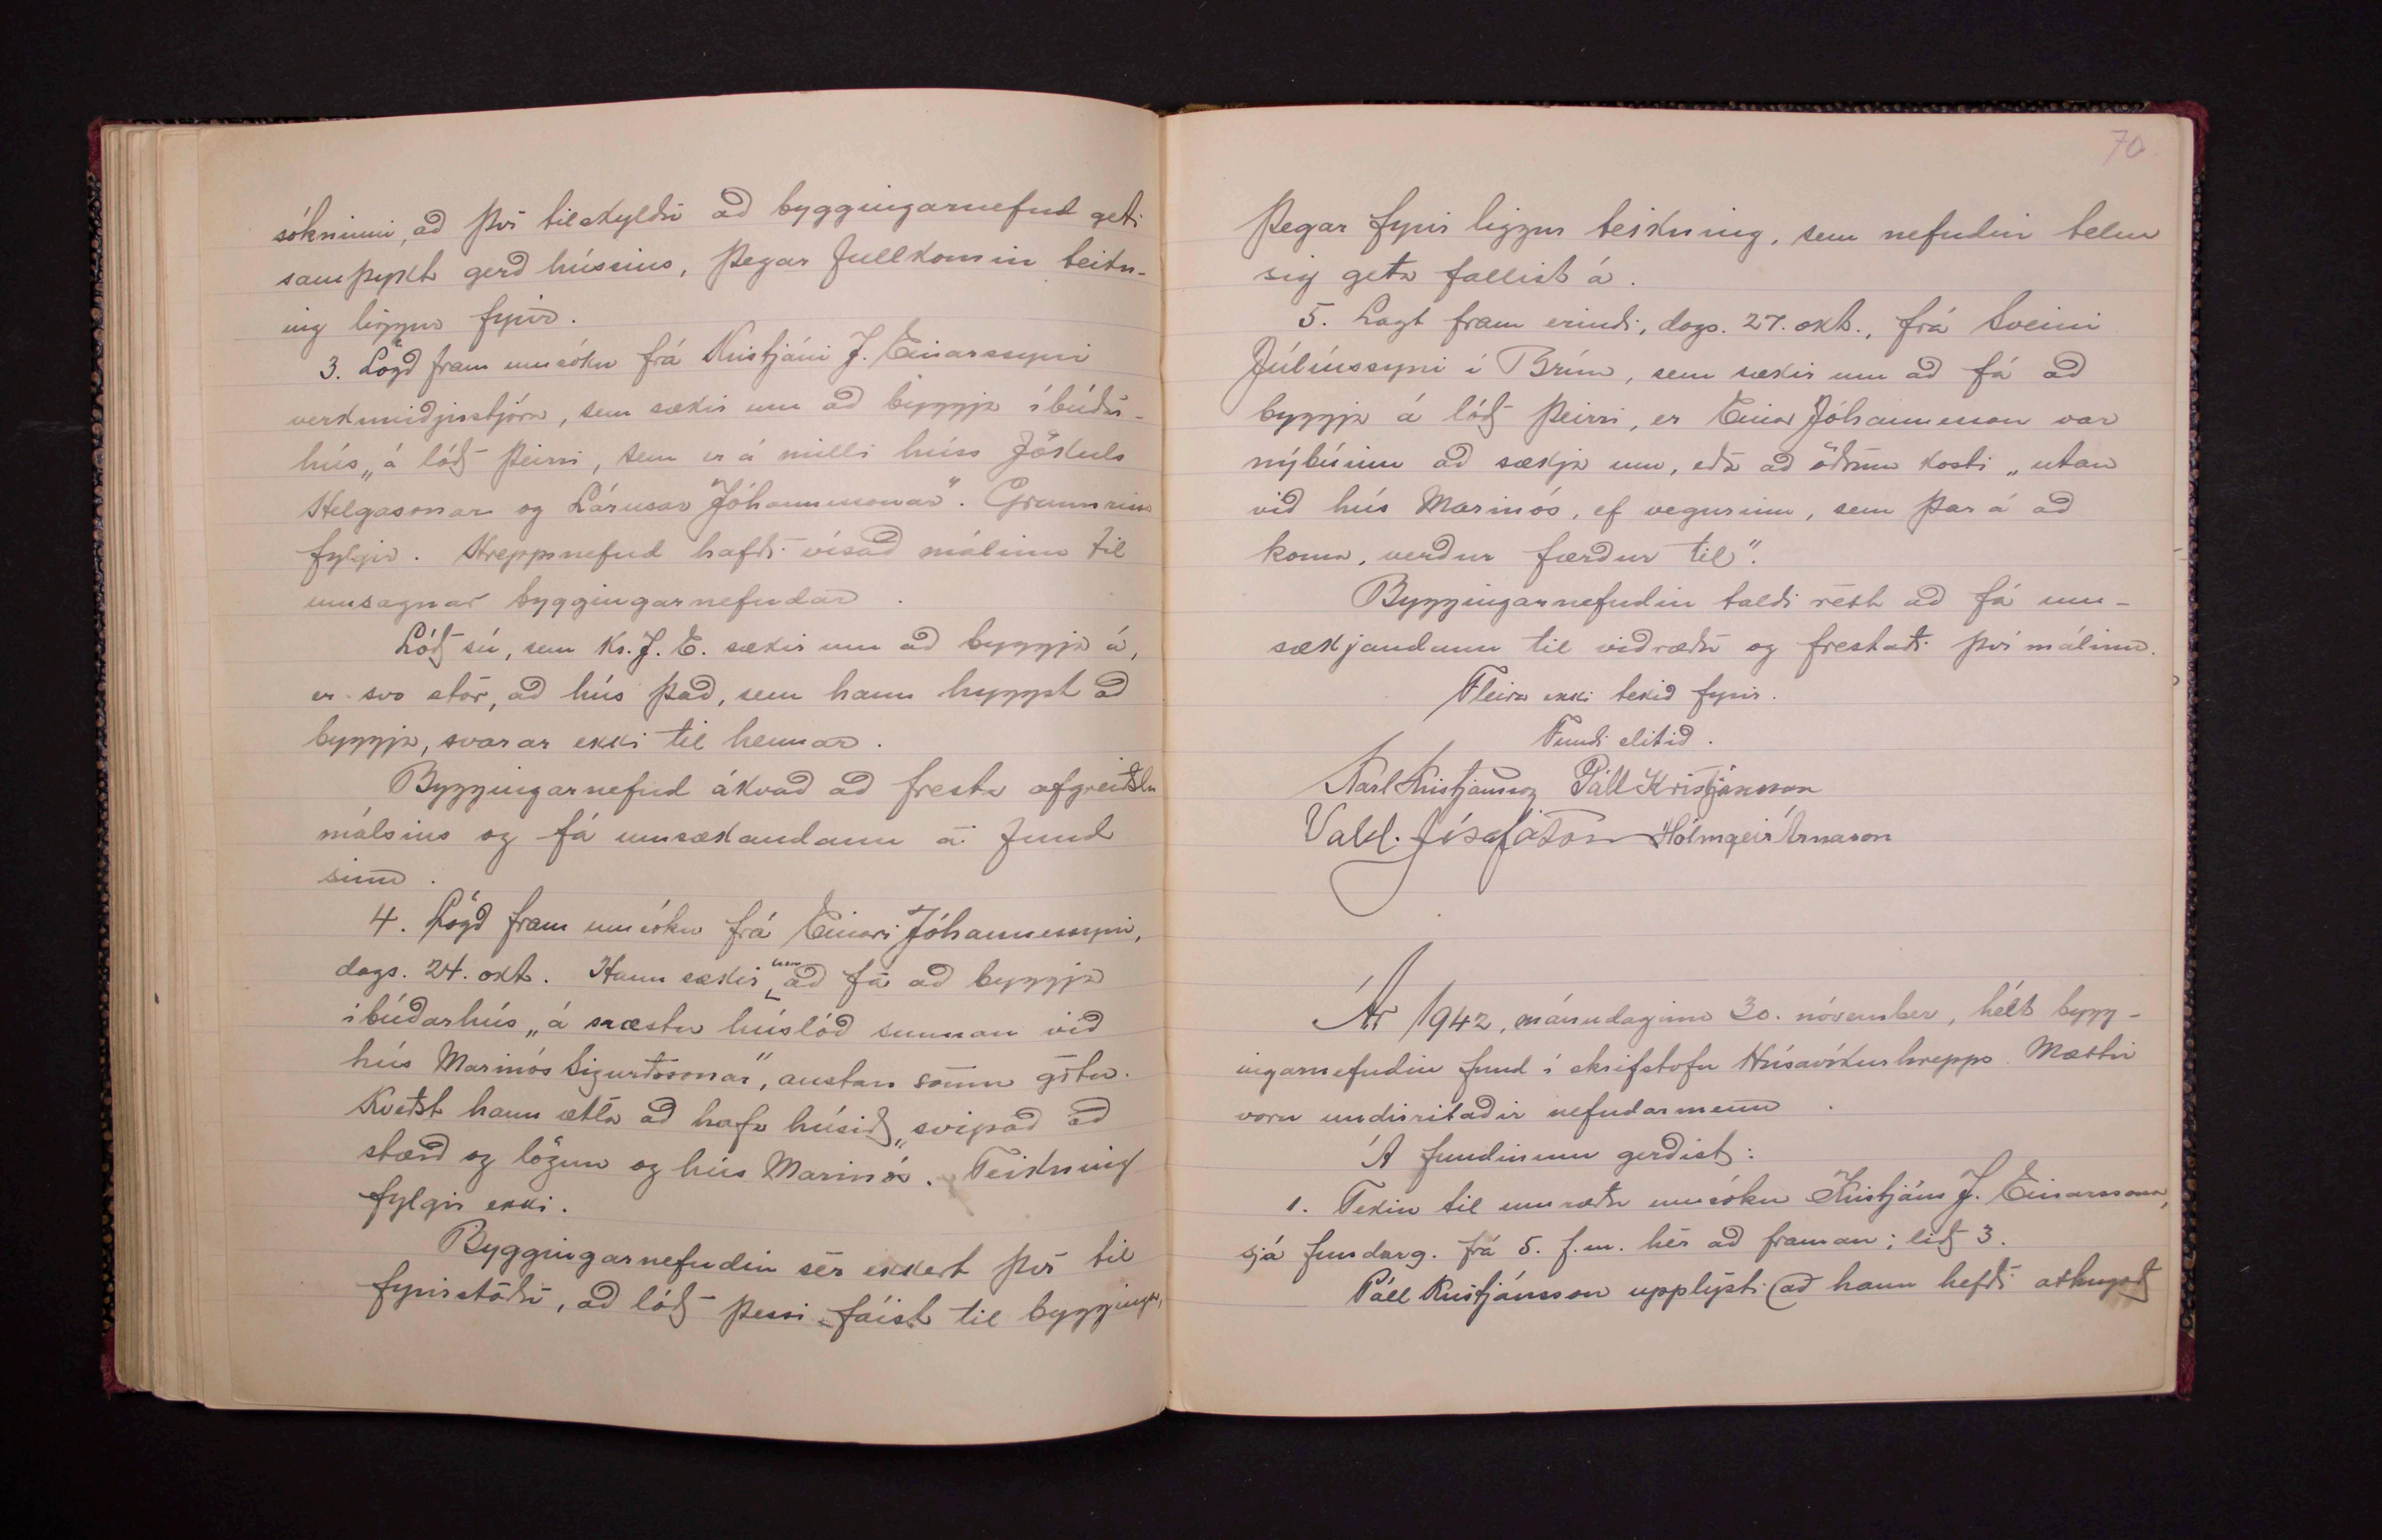 sókninni, að því tilskyldu að byggingarnefnd geti
samþykt gerð hússins, þegar fullkomin teikn-
ing liggur fyrir.
3. Lögð fram umsókn frá Kristjáni J. Einarssyni
verksmiðjustjóra, sem sækir um að byggja íbúðar-
hús „á lóð þeirri, sem er á milli húss Jökuls
Helgasonar og Lárusar Jóhannessonar". Grunnriss
fylgir. Hreppsnefnd hafði vísað málinu til
umsagnar byggingarnefndar.
Lóð sú, sem Kr. J. E. sækir um að byggja á,
er svo stór, að hús það, sem hann hyggst að
byggja, svarar ekki til hennar.
Byggingarnefnd ákvað að fresta afgreiðslu
málsins og fá umsækandann á fund
sinn.
4. Lögð fram umsókn frá Einari Jóhannessyni,
dags. 24. okt. Hann sækir um að fá að byggja
íbúðarhús „á næstu húslóð sunnan við
hús Marinós Sigurðssonar", austan sömu götu.
Kveðst hann ætla að hafa húsið „svipað að
stærð og lögun og hús Marinós. Teikning
fylgir ekki.
Byggingarnefndin sér ekkert því til
fyrirstöðu, að lóð þessi fáist til byggingar,
70
þegar fyrir liggur teikning, sem nefndin telur
sig geta fallist á.
5. Lagt fram erindi, dags. 27. okt., frá Sveini
Júlíussyni í Brúm, sem sækir um að fá að
byggja á lóð þeirri, er Einar Jóhannesson var
nýbúinn að sækja um, eða að öðrum kosti „utan
við hús Marinós, ef vegurinn, sem þar á að
koma, verður færður til".
Byggingarnefndin taldi rétt að fá um-
sækjandann til viðræðu og frestaði því málinu.
Fleira ekki tekið fyrir.
Fundi slitið.
Karl Kristjánsson Páll Kristjánsson
Vald. Jósafatsson Hólmgeir Árnason
Ár 1942, mánudaginn 30. nóvember, hélt bygg-
ingarnefndin fund í skrifstofu Húsavíkurhrepps. Mættir
voru undirritaðir nefndarmenn.
Á fundinum gerðist:
1. Tekin til umræðu umsókn Kristjáns J. Einarssonar,
sjá fundarg. frá 5. f.m. hér að framan; lið 3.
Páll Kristjánsson upplýsti að hann hefði athugað